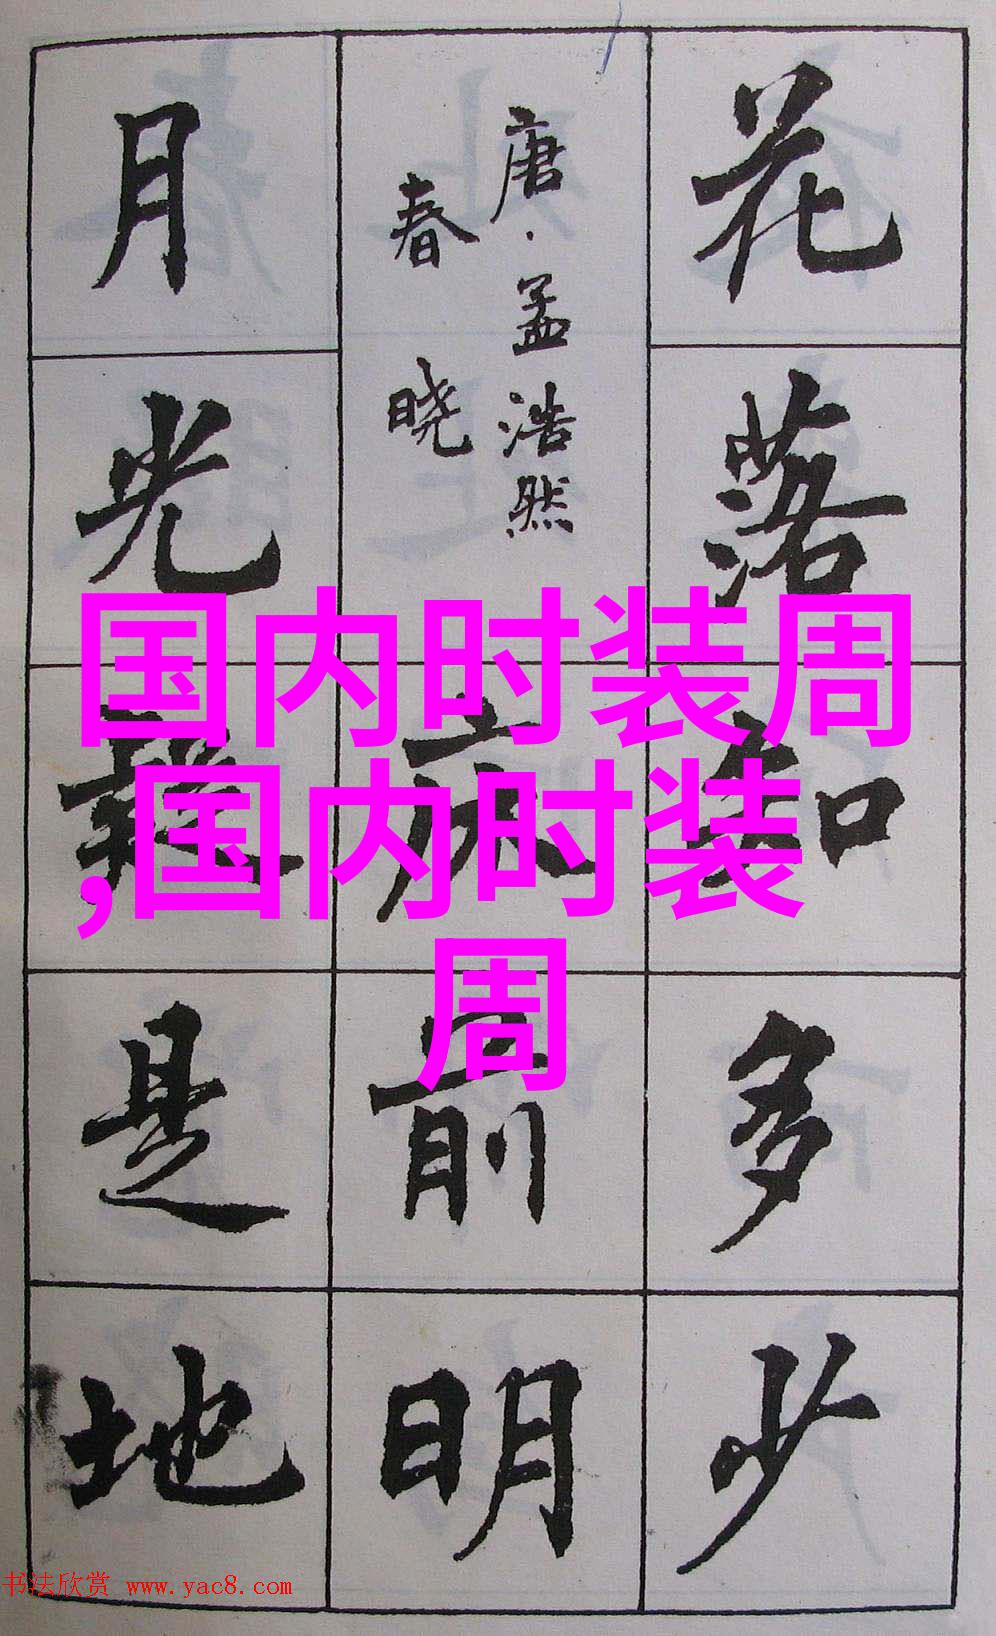 花落知多少
唐·孟浩然
春晓
床前明
月光疑是地
国内时装周
,国内时装
周
书法欣赏 www.yac8.com